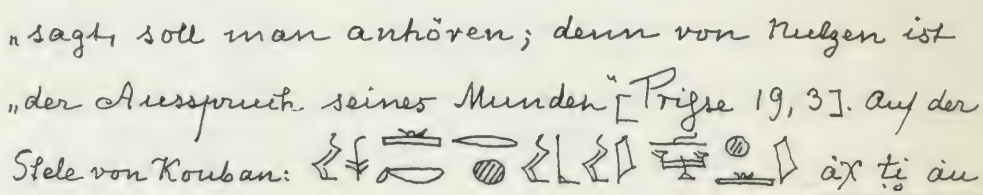 „sagt, soll man anhören; denn von Nutzen ist
„der Ausspruch seines Mundes“ [Prisse 19, 3]. Auf der
Stele von Kouban: àχ ṭi àu